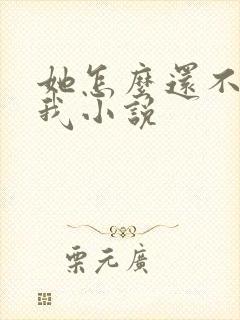 她怎麼還不
我小說
栗元廣